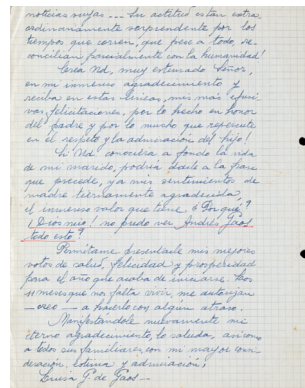 noticias suyas ... Su actitud es tan extra
ordinariamente sorprendente por los
tiempos que corren, que pese a todo, se
concilian, parcialmente con la humanidad!
Crea Vd, muy estimado Señor,
en mi inmenso agradecimiento y
reciba en estas líneas, mis más
vas felicitaciones, por lo hecho en honor
del padre y por lo mucho que representa
en el respeto y la admiración del hijo!
Si Vd. conociera a fondo la vida
de mi marido, podría darle a la frase
que precede, y a mis sentimientos de
madre tiernamente agradecida
el inmenso valor que tiene ¿Por qué?
¡Dios mío! no puedo ver Andrés Gaos
todo esto?
Permítame presentarle mis mejores
votos de salud, felicidad y prosperidad
para el año que acaba de iniciarse. Los
11 meses que nos falta vivir, me autorizan
— creo — a hacerlo con algún atraso.
Manifestándole nuevamente mi
eterno agradecimiento, lo saluda, así como
a todos sus familiares con mi mayor consi
deración, estima y admiración;
Luisa G. de Gaos —